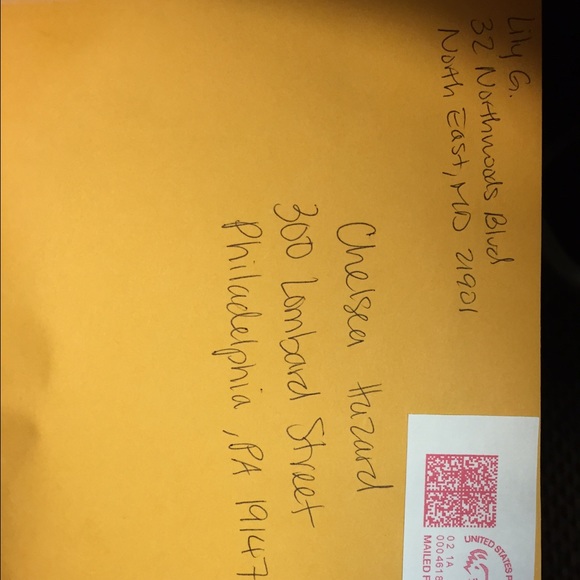 Lily G.
32 Northwoods Blvd
North East, MD 21901
Chelsea Hazard
300 Lombard Street
Philadelphia, PA 19147
UNITED STATES
02 1A
0004618
MAILED F